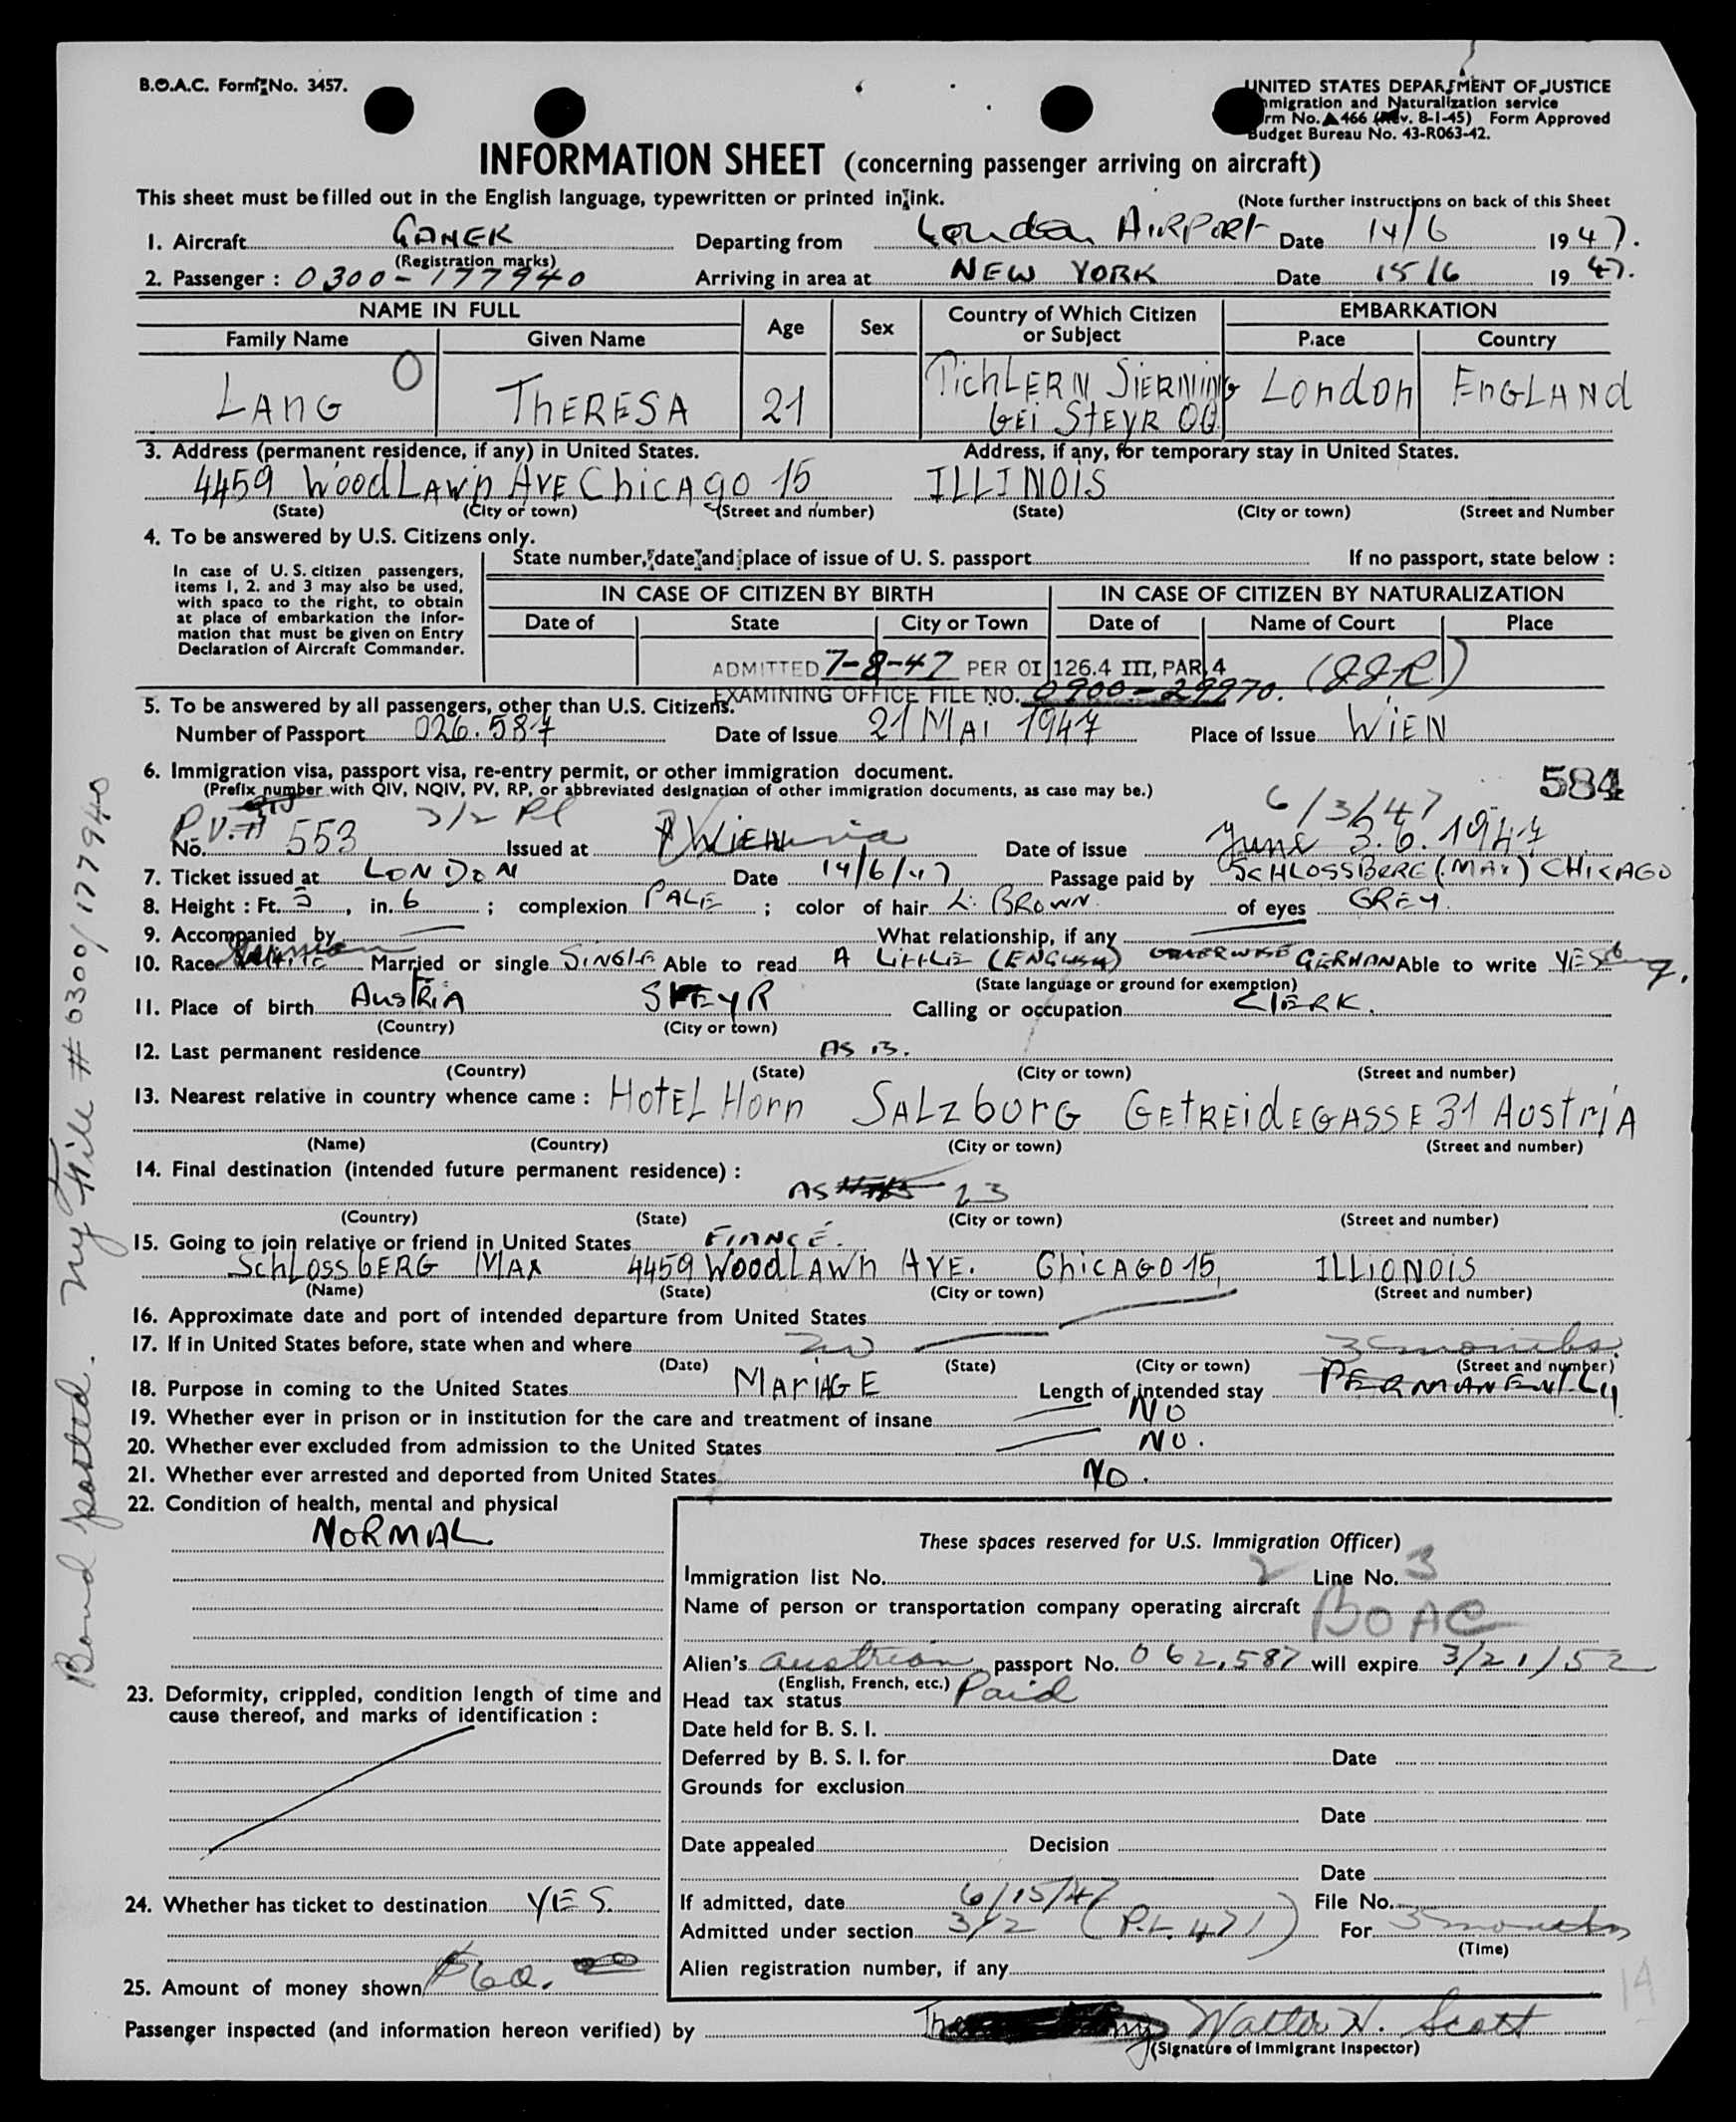 B.O.A.C. Form No. 3457.
UNITED STATES DEPARTMENT OF JUSTICE
Immigration and Naturalization service
Form No. A 466 (Rev. 8-1-45) Form Approved
Budget Bureau No. 43-R063-42.
INFORMATION SHEET (concerning passenger arriving on aircraft)
This sheet must be filled out in the English language, typewritten or printed in ink. (Note further instructions on back of this Sheet
1. Aircraft Departing from London AIRPORT Date 14/6 1947.
(Registration marks)
2. Passenger : 0300-177940 Arriving in area at NEW YORK Date 15/6 1947.
NAME IN FULL Age Sex Country of Which Citizen or Subject EMBARKATION
Family Name Given Name P.ace Country
LANG THERESA 21 PichLERN SIERNING London ENGLANd
bEi STEYR OÖ
3. Address (permanent residence, if any) in United States. Address, if any, for temporary stay in United States.
4459 WoodLAWn AVE ChicAgo 15, ILLINOIS
(State) (City or town) (Street and number) (State) (City or town) (Street and Number
4. To be answered by U.S. Citizens only.
State number, date and place of issue of U. S. passport If no passport, state below :
In case of U. S. citizen passengers,
items 1, 2. and 3 may also be used,
with space to the right, to obtain
at place of embarkation the Infor-
mation that must be given on Entry
Declaration of Aircraft Commander.
IN CASE OF CITIZEN BY BIRTH IN CASE OF CITIZEN BY NATURALIZATION
Date of State City or Town Date of Name of Court Place
ADMITTED 7-8-47 PER OI 126.4 III, PAR. 4 (JJR)
EXAMINING OFFICE FILE NO. 0900-29970.
5. To be answered by all passengers, other than U.S. Citizens.
Number of Passport 026.587 Date of Issue 21 MAI 1947 Place of Issue WIEN
6. Immigration visa, passport visa, re-entry permit, or other immigration document.
(Prefix number with QIV, NQIV, PV, RP, or abbreviated designation of other immigration documents, as case may be.)
584
6/3/47
P.V. 3/2 Pl
No. 553 Issued at WIEN Date of issue June 3.6.1947
7. Ticket issued at LONDON Date 14/6/47 Passage paid by SCHLOSSBERG (MAX) CHICAGO
8. Height : Ft. 5, in. 6 ; complexion PALE ; color of hair L. BROWN. of eyes GREY.
9. Accompanied by What relationship, if any
10. Race Married or single SINGLE Able to read A LITTLE (ENGLISH) OTHERWISE GERMAN Able to write YES
(State language or ground for exemption)
11. Place of birth AUSTRIA STEYR Calling or occupation CLERK.
(Country) (City or town)
12. Last permanent residence AS 13.
(Country) (State) (City or town) (Street and number)
13. Nearest relative in country whence came : HOTEL Horn SALZbURG GETREIDEGASSE 31 AUSTRIA
(Name) (Country) (City or town) (Street and number)
14. Final destination (intended future permanent residence) :
AS
(Country) (State) (City or town) (Street and number)
15. Going to join relative or friend in United States FIANCÉ.
SchLOSSbERG MAX 4459 WoodLAWn AVE. ChICAGO 15, ILLIONOIS
(Name) (State) (City or town) (Street and number)
16. Approximate date and port of intended departure from United States
17. If in United States before, state when and where no 3 months
(Date) (State) (City or town) (Street and number)
18. Purpose in coming to the United States MARIAGE Length of intended stay PERMANENTLY
19. Whether ever in prison or in institution for the care and treatment of insane NO
20. Whether ever excluded from admission to the United States NO.
21. Whether ever arrested and deported from United States NO.
22. Condition of health, mental and physical
NORMAL
23. Deformity, crippled, condition length of time and
cause thereof, and marks of identification :
24. Whether has ticket to destination YES.
25. Amount of money shown $60.00
These spaces reserved for U.S. Immigration Officer)
Immigration list No. 2 Line No. 3
Name of person or transportation company operating aircraft BOAC
Alien's Austrian passport No. 062,587 will expire 3/21/52
(English, French, etc.)
Head tax status Paid
Date held for B. S. I.
Deferred by B. S. I. for Date
Grounds for exclusion
Date
Date appealed Decision
Date
If admitted, date 6/15/47 File No.
Admitted under section 3/2 (P.L. 471) For 3 months
(Time)
Alien registration number, if any
14
Passenger inspected (and information hereon verified) by Walter H. Scott
(Signature of Immigrant Inspector)
Bond posted. NY File # 0300/177940